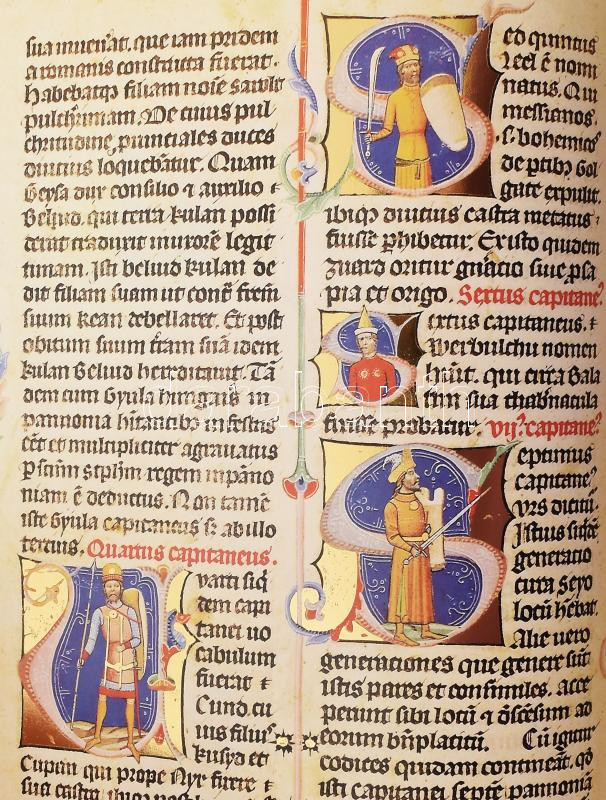 sua invenˀat. que iam pridem
a romanis constructa fuerat.
Habebatqꝫ filiam noīe sarolt
pulchrimam. De cuius pul
chritudine prinīciales duces
diutius loquebātur. Quam
Geysa dux consilio ⁊ auxilio ⁊
Beliud. qui terra kulan possi
debat tradux̄it in uxorē legit
timam. Isti beliud kulan de
dit filiam suam ut contˀ fr̄em
suum kean rebellaret. Et post
obitum suum tr̄am suā idem
kulan Beliud hereditauit. Tā
dem cum Gyula hungaris in
pannonia hītantibꝫ infestus
eēt et multipliciter agrauatus
ꝑ sc̄tūm stephm̄ regem in pāno
niam ē deductus. Non tamē
iste Gyula capitaneus sꝫ ab illo
tercius. Quartus capitaneus.
uarti siqͥ
dem capi
tanei uo
cabulum
fuerat ⁊
Cund. cu
ius filiuˢ
kusyd et
Cupan qui prope Nyr fuere ⁊
sua castra
ed quintus
Leel ē nomi
natus. Qui
messianos.
⁊ bohemicoˢ
de ꝑtibꝫ Gol
gate expulit.
ibiqꝫ diutius castra metatus
fuisse ꝑhibetur. Ex isto quidem
zuard oritur gn̄acio siue ꝓsa
pia et origo. Sextus capitaneˀ
extus capitaneus. ⁊
Werbulchu nomen
habuit. qui circa Bala
tun sua thabernacula
fuisse probatur. vijˀ. capitaneˀ
eptimus
capitaneˀ
vrs dicitur.
Istius siquidē
generatio
circa Seyo
locū hēbat.
Alie uero
generaciones que genere sūt
istis pares et consimiles. acce
perunt sibi locū ⁊ dēscēsum ad
eorum bn̄placitū. Cū igitur
codices quidam contineāt. qͦd
isti capitanei septē pannoniā